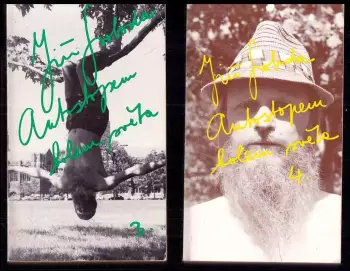 Jiří Svoboda
Autostopem
kolem světa
3.
Jiří Svoboda
Autostopem
kolem světa
4